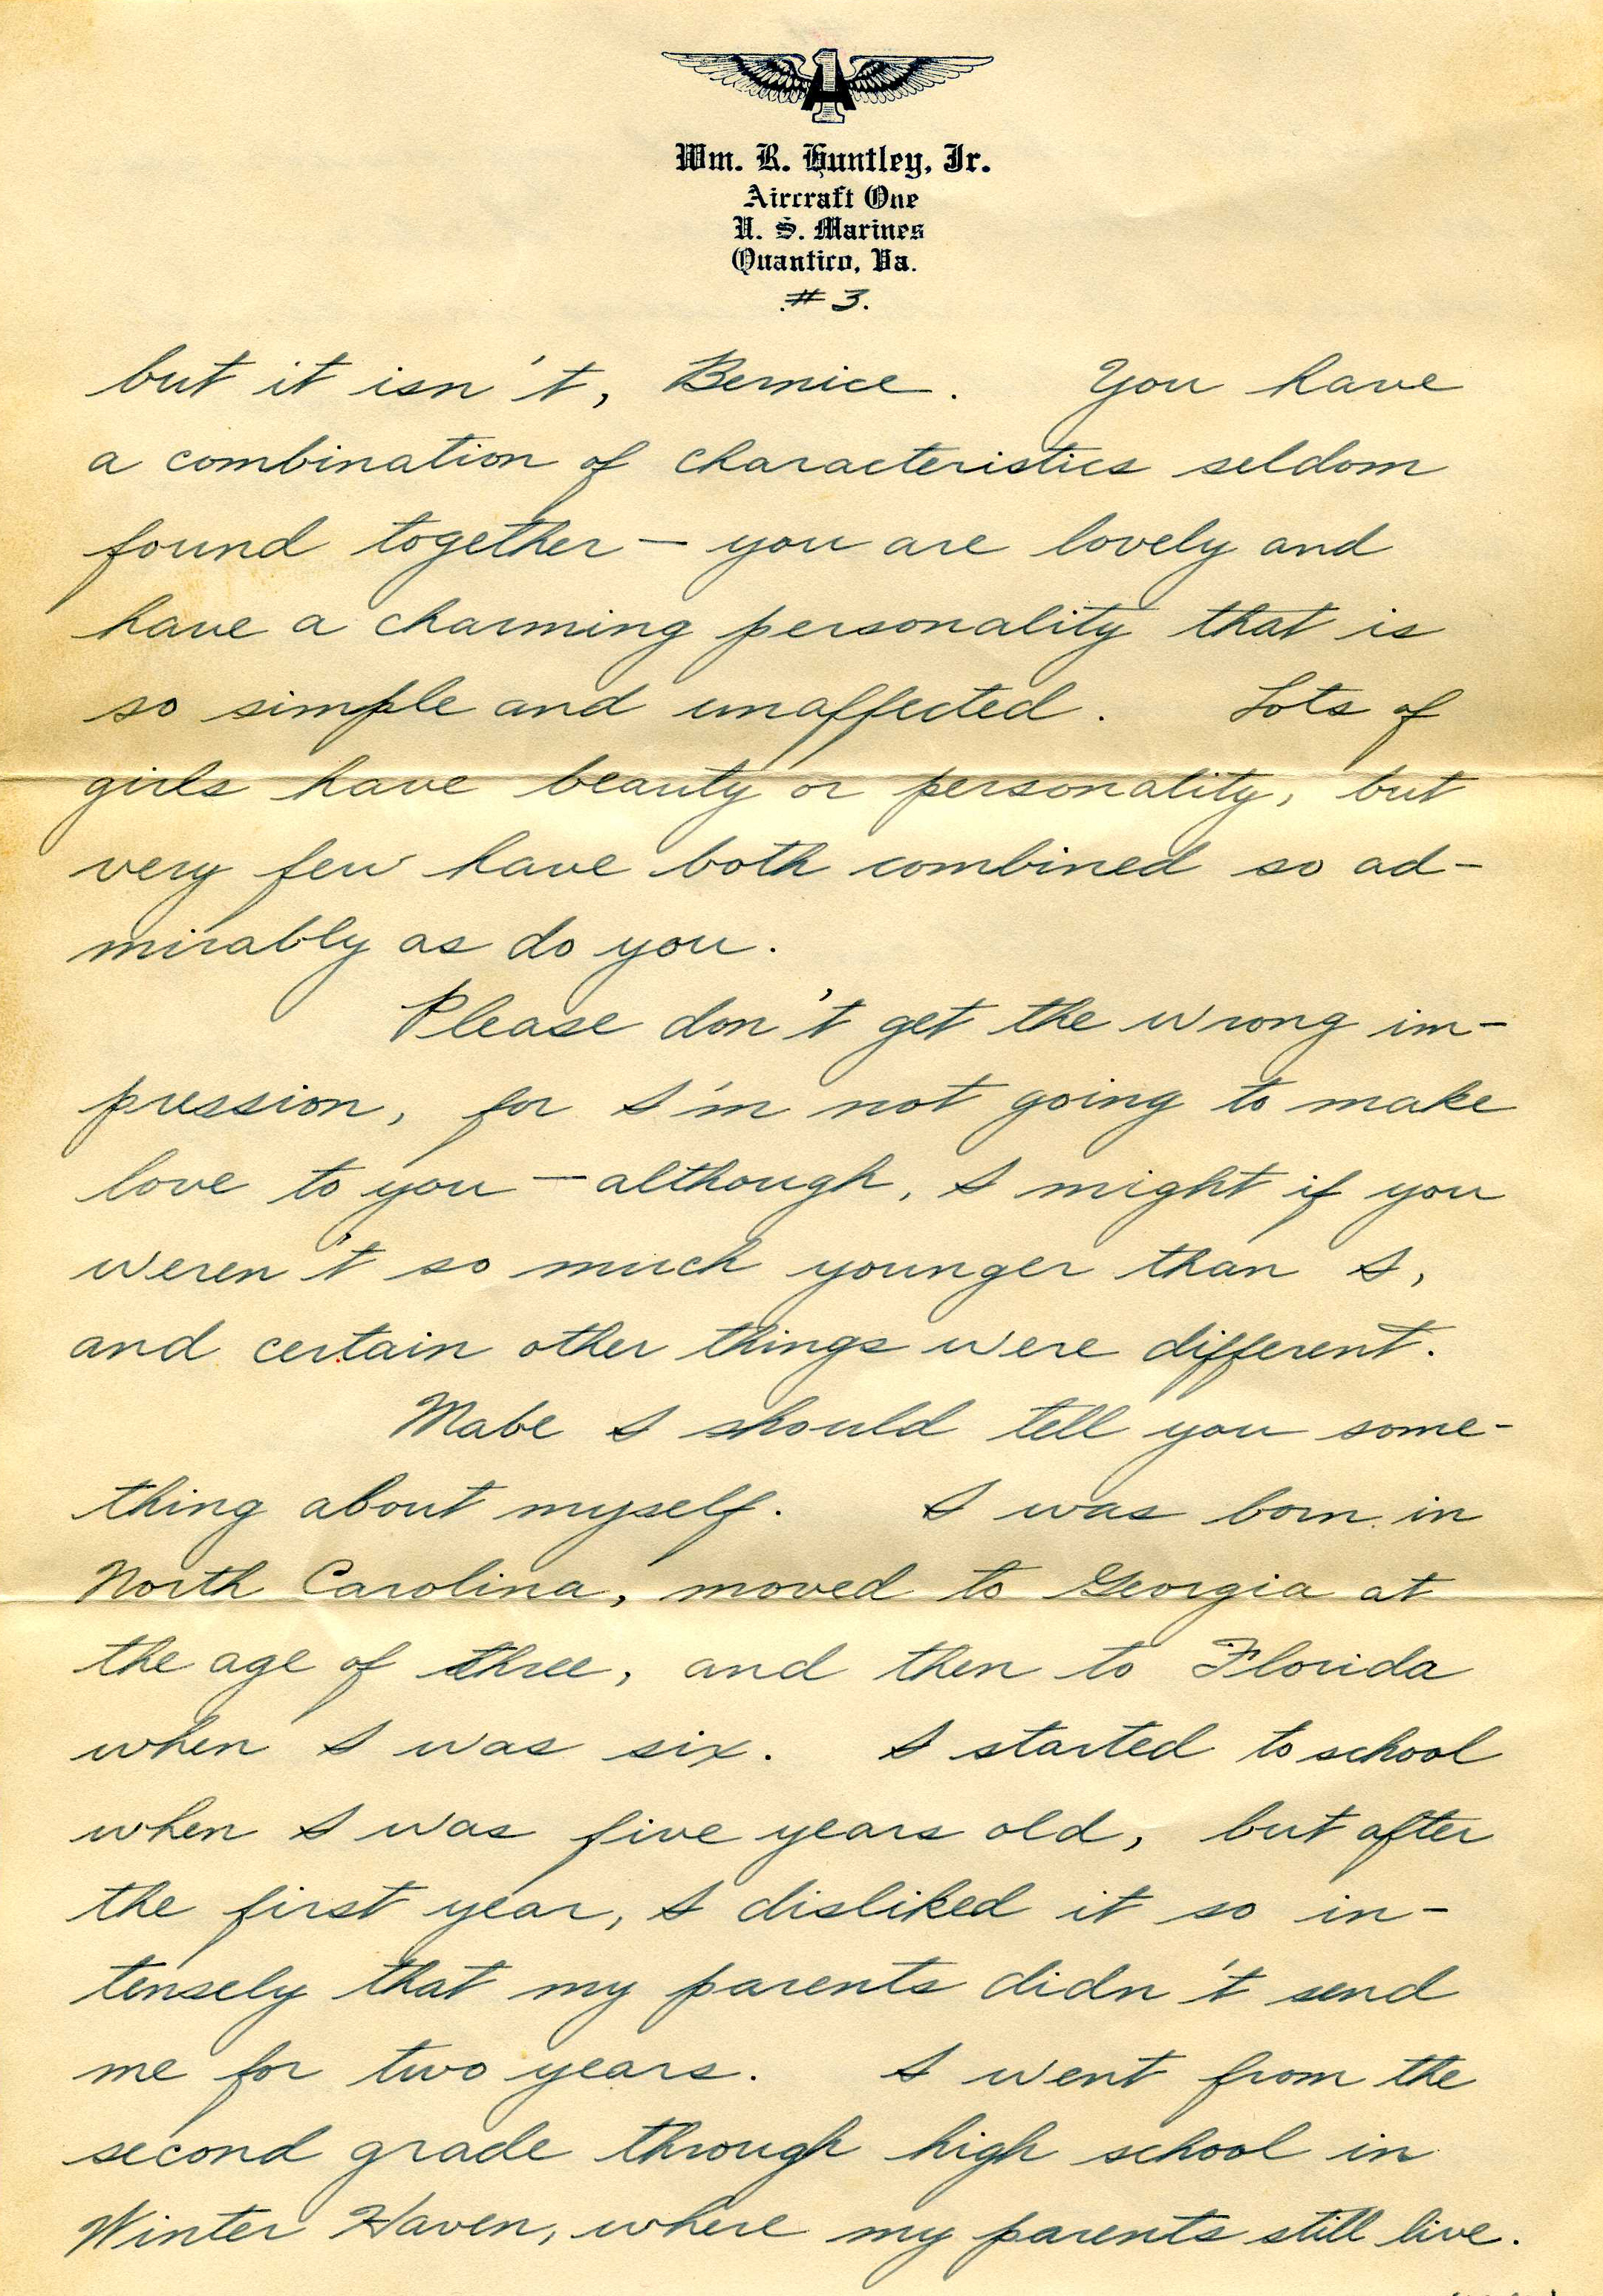 Wm. R. Huntley, Jr.
Aircraft One
U. S. Marines
Quantico, Va.
# 3.
but it isn't, Bernice. You have
a combination of characteristics seldom
found together – you are lovely and
have a charming personality that is
so simple and unaffected. Lots of
girls have beauty or personality, but
very few have both combined so ad-
mirably as do you.
Please don't get the wrong im-
pression, for I'm not going to make
love to you – although, I might if you
weren't so much younger than I,
and certain other things were different.
Mabe I should tell you some-
thing about myself. I was born in
North Carolina, moved to Georgia at
the age of three, and then to Florida
when I was six. I started to school
when I was five years old, but after
the first year, I disliked it so in-
tensely that my parents didn't send
me for two years. I went from the
second grade through high school in
Winter Haven, where my parents still live.